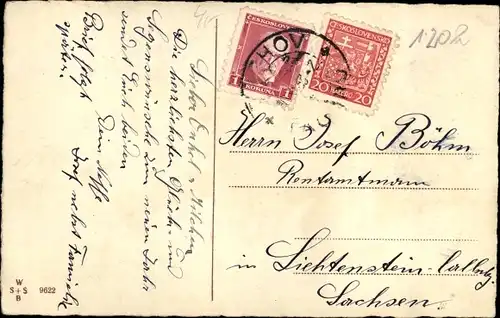 Lieber Onkel u. Milchen
Die herzlichsten Glück- und
Segenswünsche zum neuen Jahr
sendet Euch beiden
Dein Neffe
Josef nebst Familie
Brief folgt
später.
ČESKOSLOV
1 KORUNA 1
ČESKOSLOVENSKO
20 HALÉŘŮ 20
HOV
120R
Herrn Josef Böhm
Rentamtmann
in Lichtenstein-Callnbg.
Sachsen.
W
S+S 9622
B